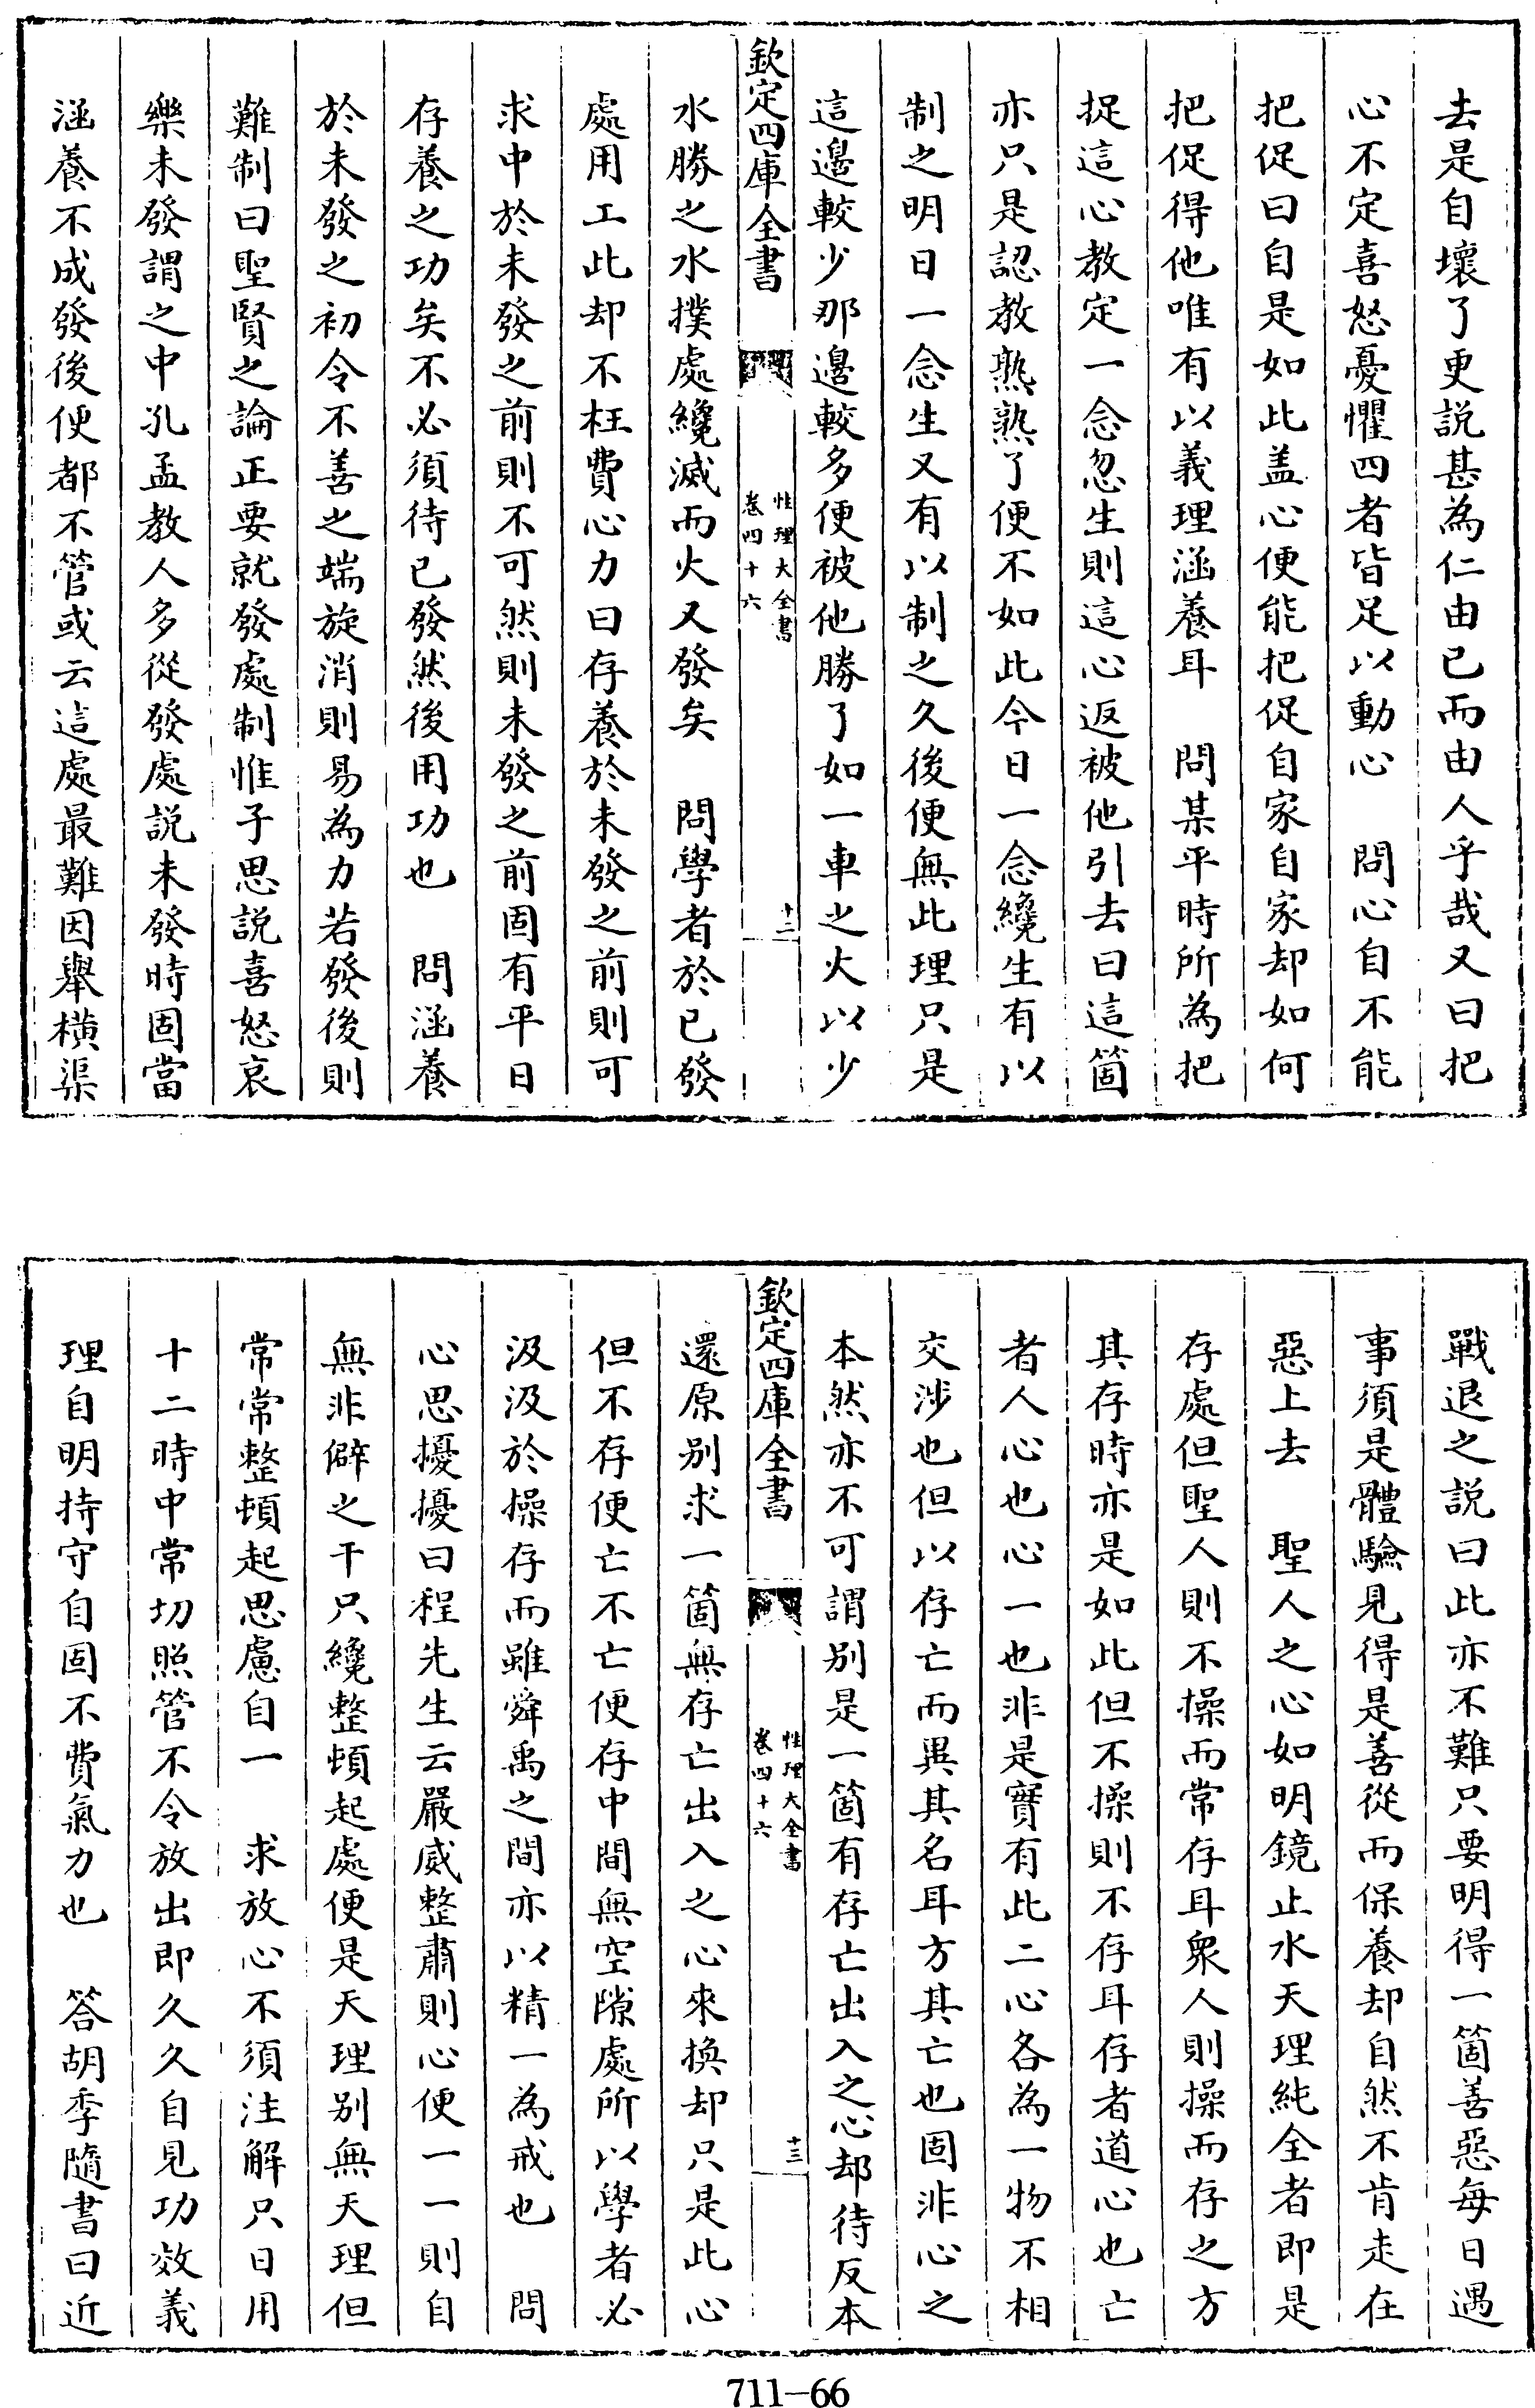 去是自壞了更説甚為仁由已而由人乎哉又曰把
心不定喜怒憂懼四者皆足以動心　問心自不能
把促曰自是如此盖心便能把促自家自家却如何
把促得他唯有以義理涵養耳　問某平時所為把
捉這心教定一念忽生則這心返被他引去曰這箇
亦只是認教熟熟了便不如此今日一念纔生有以
制之明日一念生又有以制之久後便無此理只是
這邉較少那邉較多便被他勝了如一車之火以少
欽定四庫全書
性理大全書
卷四十六
十二
水勝之水撲處纔滅而火又發矣　問學者於已發
處用工此却不枉費心力曰存養於未發之前則可
求中於未發之前則不可然則未發之前固有平日
存養之功矣不必須待已發然後用功也　問涵養
於未發之初令不善之端旋消則易為力若發後則
難制曰聖賢之論正要就發處制惟子思説喜怒哀
樂未發謂之中孔孟教人多從發處説未發時固當
涵養不成發後便都不管或云這處最難因舉橫渠
戰退之説曰此亦不難只要明得一箇善惡每日遇
事須是體驗見得是善從而保養却自然不肯走在
惡上去　聖人之心如明鏡止水天理純全者即是
存處但聖人則不操而常存耳衆人則操而存之方
其存時亦是如此但不操則不存耳存者道心也亡
者人心也心一也非是實有此二心各為一物不相
交涉也但以存亡而異其名耳方其亡也固非心之
本然亦不可謂别是一箇有存亡出入之心却待反本
欽定四庫全書
性理大全書
卷四十六
十三
還原别求一箇無存亡出入之心來換却只是此心
但不存便亡不亡便存中間無空隙處所以學者必
汲汲於操存而雖舜禹之間亦以精一為戒也　問
心思擾擾曰程先生云嚴威整肅則心便一一則自
無非僻之干只纔整頓起處便是天理别無天理但
常常整頓起思慮自一　求放心不須注解只日用
十二時中常切照管不令放出即久久自見功效義
理自明持守自固不費氣力也　答胡季隨書曰近
711-66